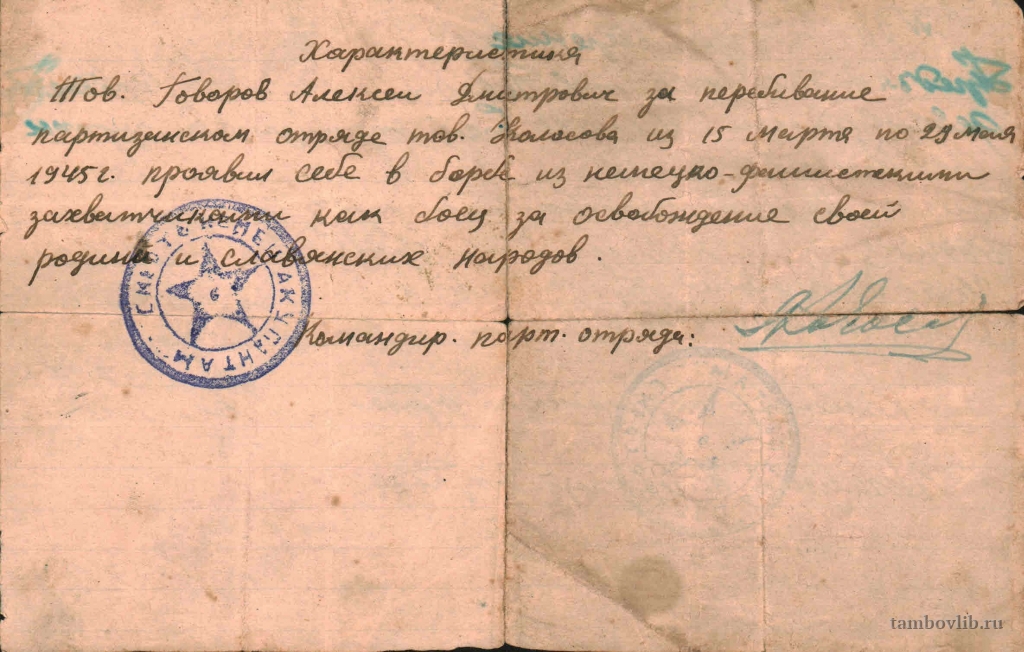 Характеристика
Тов. Говоров Алексей Дмитрович за перебивание
партизанском отряде тов. Колосова из 15 марта по 29 мая
1945г. проявил себе в борбе из немецко-фашистскими
захватчиками как боец за освобождение своей
родини и славянских народов.
СМЕРТЬ НЕМЕЦ. АКУПАНТАМ
6
Командир. парт. отряда:
tambovlib.ru